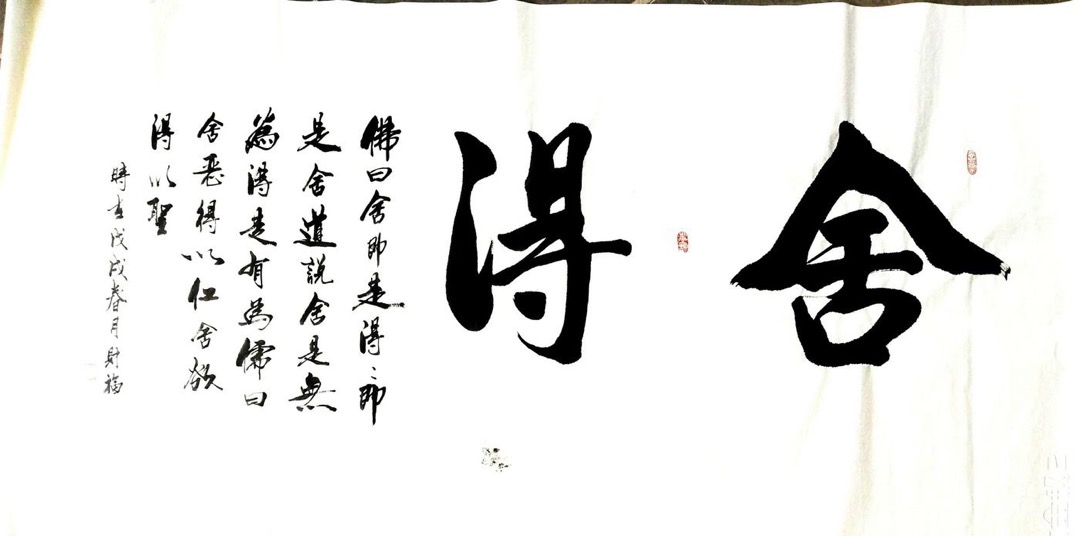 舍得
佛曰舍即是得〻即
是舍道説舍是無
為得是有為儒曰
舍惡得以仁舍欲
得以聖
時在戊戌春月財福